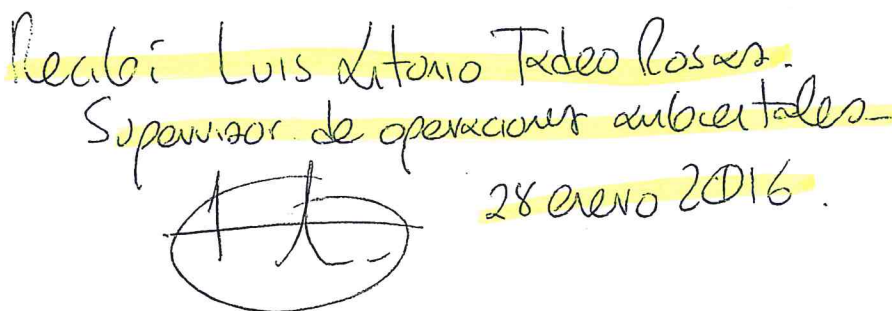 Recibí Luis Antonio Tadeo Rosas.
Supervisor de operaciones ambientales
28 enero 2016.